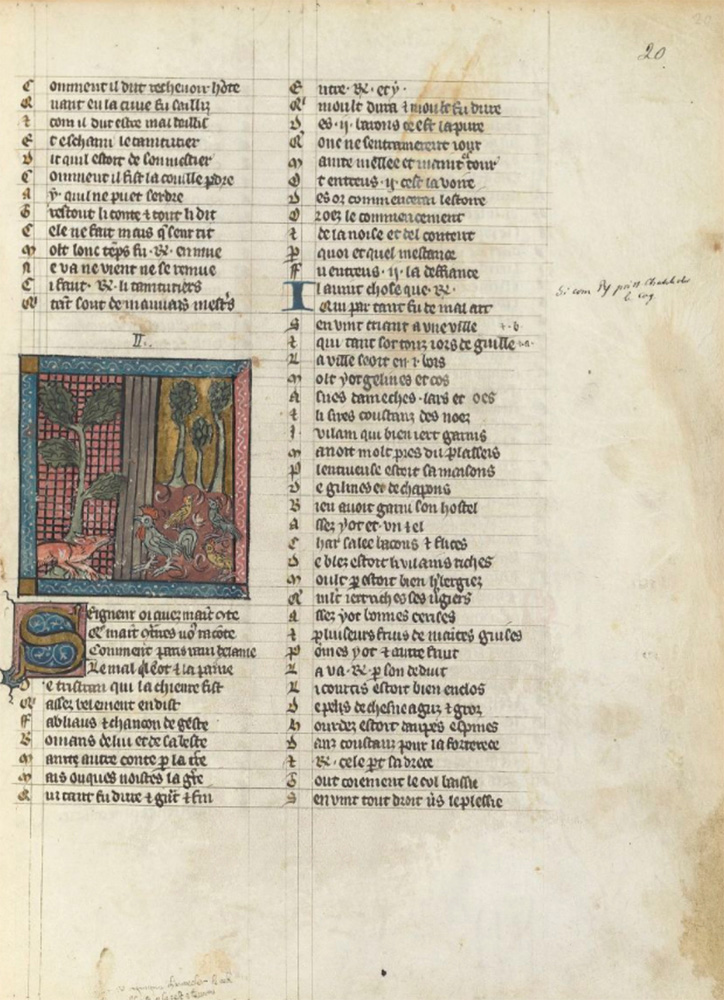 20
C omment il dut recheuoir hōte
Q uant en la cuue fu sailliz
t com il dut estre mal bailliz
E t eschani le tainturier
D it quil estoit de son mestier
C omment il fist la coulle pdre
A y· quil ne puet serdre
G restout li conte ⁊ tout li dit
C ele ne fait mais q̄ sentrit
M olt lonc tēps fu ·R̄· en mue
N e va ne vient ne se remue
C i faut ·R̄· li tainturiers
II.
Seignent oi auez maīt ɔte
Q̄ maīt
Comment paris raui helaine
Le mal q̄l eot ⁊ la paine
D e tristran qui la chieure fist
Q̄ assez belement en dist
F abliaus ⁊ chancon de geste
R omans de lui et de sa beste
M aintz autre conte p la tr̄e
M ais onques noistes la gr̄e
Q ui tant fu dure ⁊ gr̄nt ⁊ fin
E ntre ·R̄· et y·
Q̄ moult dura ⁊ moult fu dure
D es ·ij· barons ce est la pure
Q̄ onc ne sentramerent iour
M ainte mellee et maint tour
O t entreus ·ij· cest la voire
D es or commencerai lestoire
O roez le commencement
t de la noise et del content
P quoi et quel mestance
F u entreus ·ij· la deffiance
I l auint chose que ·R̄·
Qui par tant fu de mal art
S en vint triant a vne ville
t qui tant sot touz iors de guille
L a ville seoit en ·i· bois
M olt y ot gelines et cos
A nes dameches iars et oes
t li sires coustanz des noez
·I· vilain qui bien iert garnis
M anoit molt pres du plasseis
P lentiueuse estoit sa maisons
D e gilines et de chapons
B ien auoit garni son hostel
A ssez y ot et ·vn· ⁊ el
C har salee bacons ⁊ fliches
D e blez estoit li vilains riches
M oult p estoit bien hbergiez
Q̄ mlt iert riches ses v̄giers
A ssez y ot bonnes cerises
t pluseurs fruis de maintes guises
P omes y ot ⁊ autre fruit
L a va ·R̄· p son deduit
L i courtis estoit bien enclos
D e pels de chesne aguz ⁊ groz
H ourdez estoit daupes espines
D anz coustanz pour la forterece
t ·R̄· cele pt sa drece
T out coiement le col baissie
S en vint tout droit v̄s le plessie